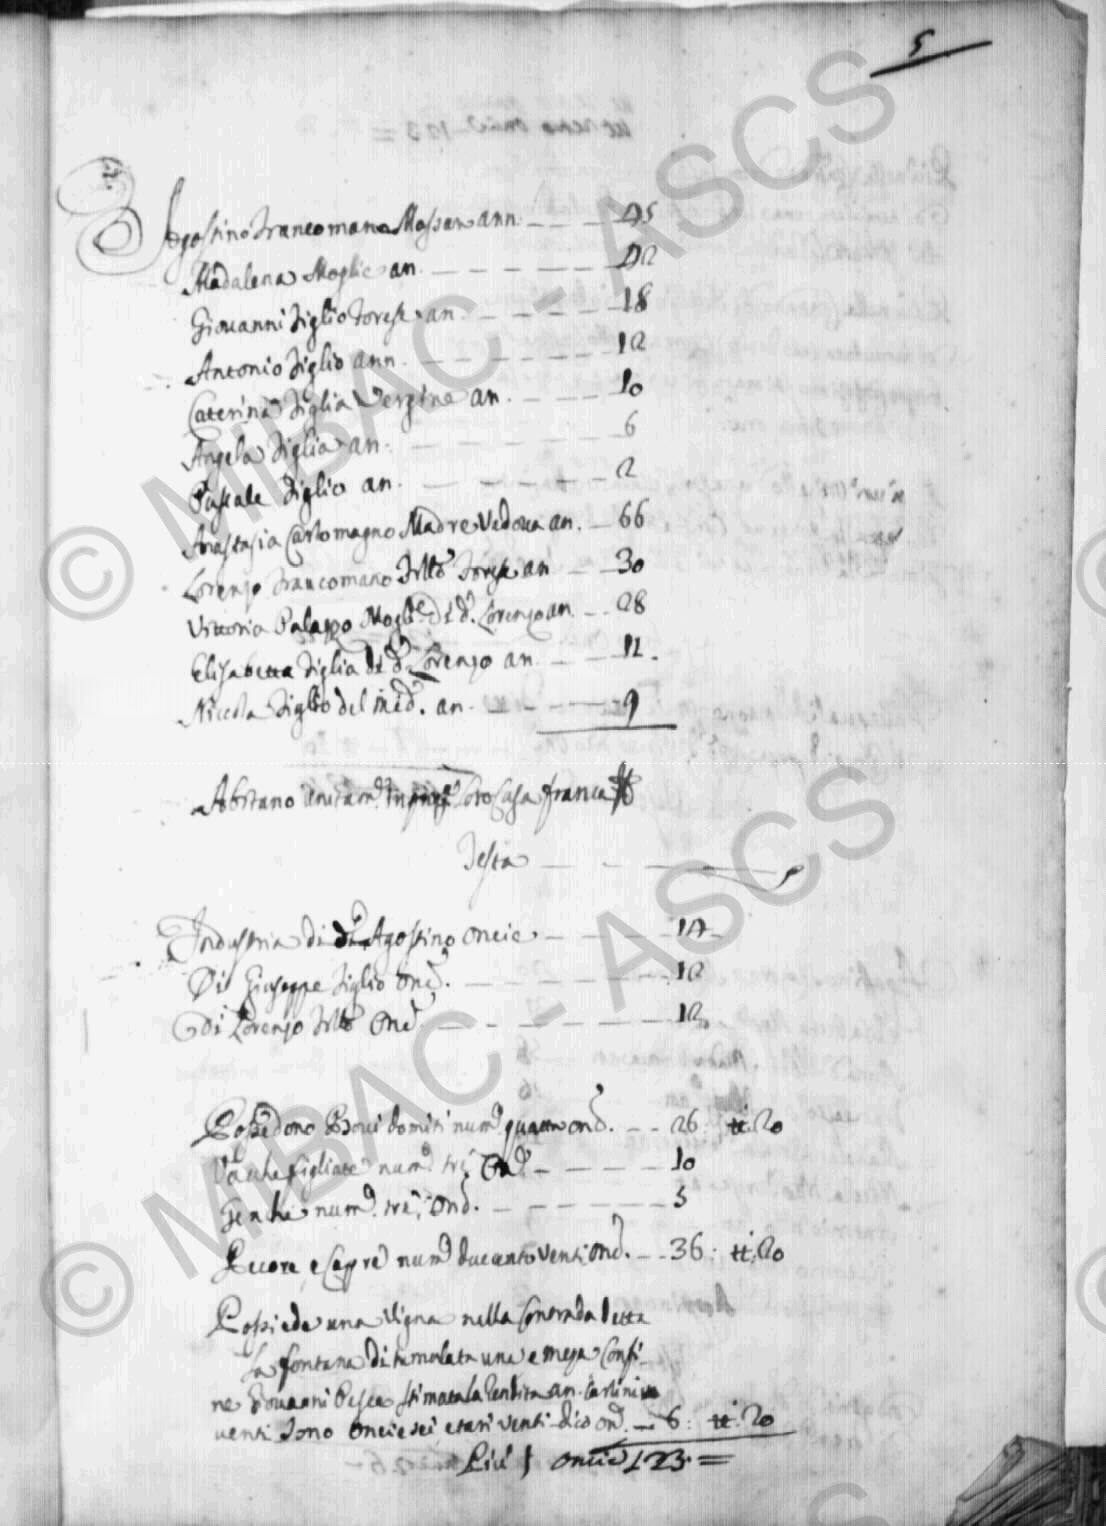 5
Agostino Francomano Massaro ann. 45
Madalena Moglie an. 42
Giovanni figlio forese an. 18
Antonio figlio ann. 12
Caterina figlia Vergine an. 10
Angela figlia an. 6
Pascale figlio an. 2
Anastasia Carlomagno Madre Vedova an. 66
Lorenzo Francomano fr̃llo forese an 30
Vittoria Palazzo Mogl.e di d.o Lorenzo an. 28
Elisabetta figlia di d.o Lorenzo an. 11.
Niccola figlio del med.o an. 9
Abitano unitam.e in loro Casa franca
Testa
Industria di d.o Agostino oncie 14
Di Giuseppe figlio onc. 12
Di Lorenzo fr̃llo onc. 12
Possedono Bovi domiti num.o quattro onc. 26: tt: 20
Vacche figliate num.o tre onc. 10
Genche num.o tre, onc. 5
Pecore, e Capre num.o ducento venti onc. 36: tt: 20
Possiede una Vigna nella Contrada detta
la fontana di tumolata una e meza Confi-
ne Giovanni Pesce stimata la rendita an. carlini
venti sono oncie sei, e tari venti dico onc. 6: tt: 20
oncie 123 =
© MIBAC - ASCS
© MIBAC - ASCS